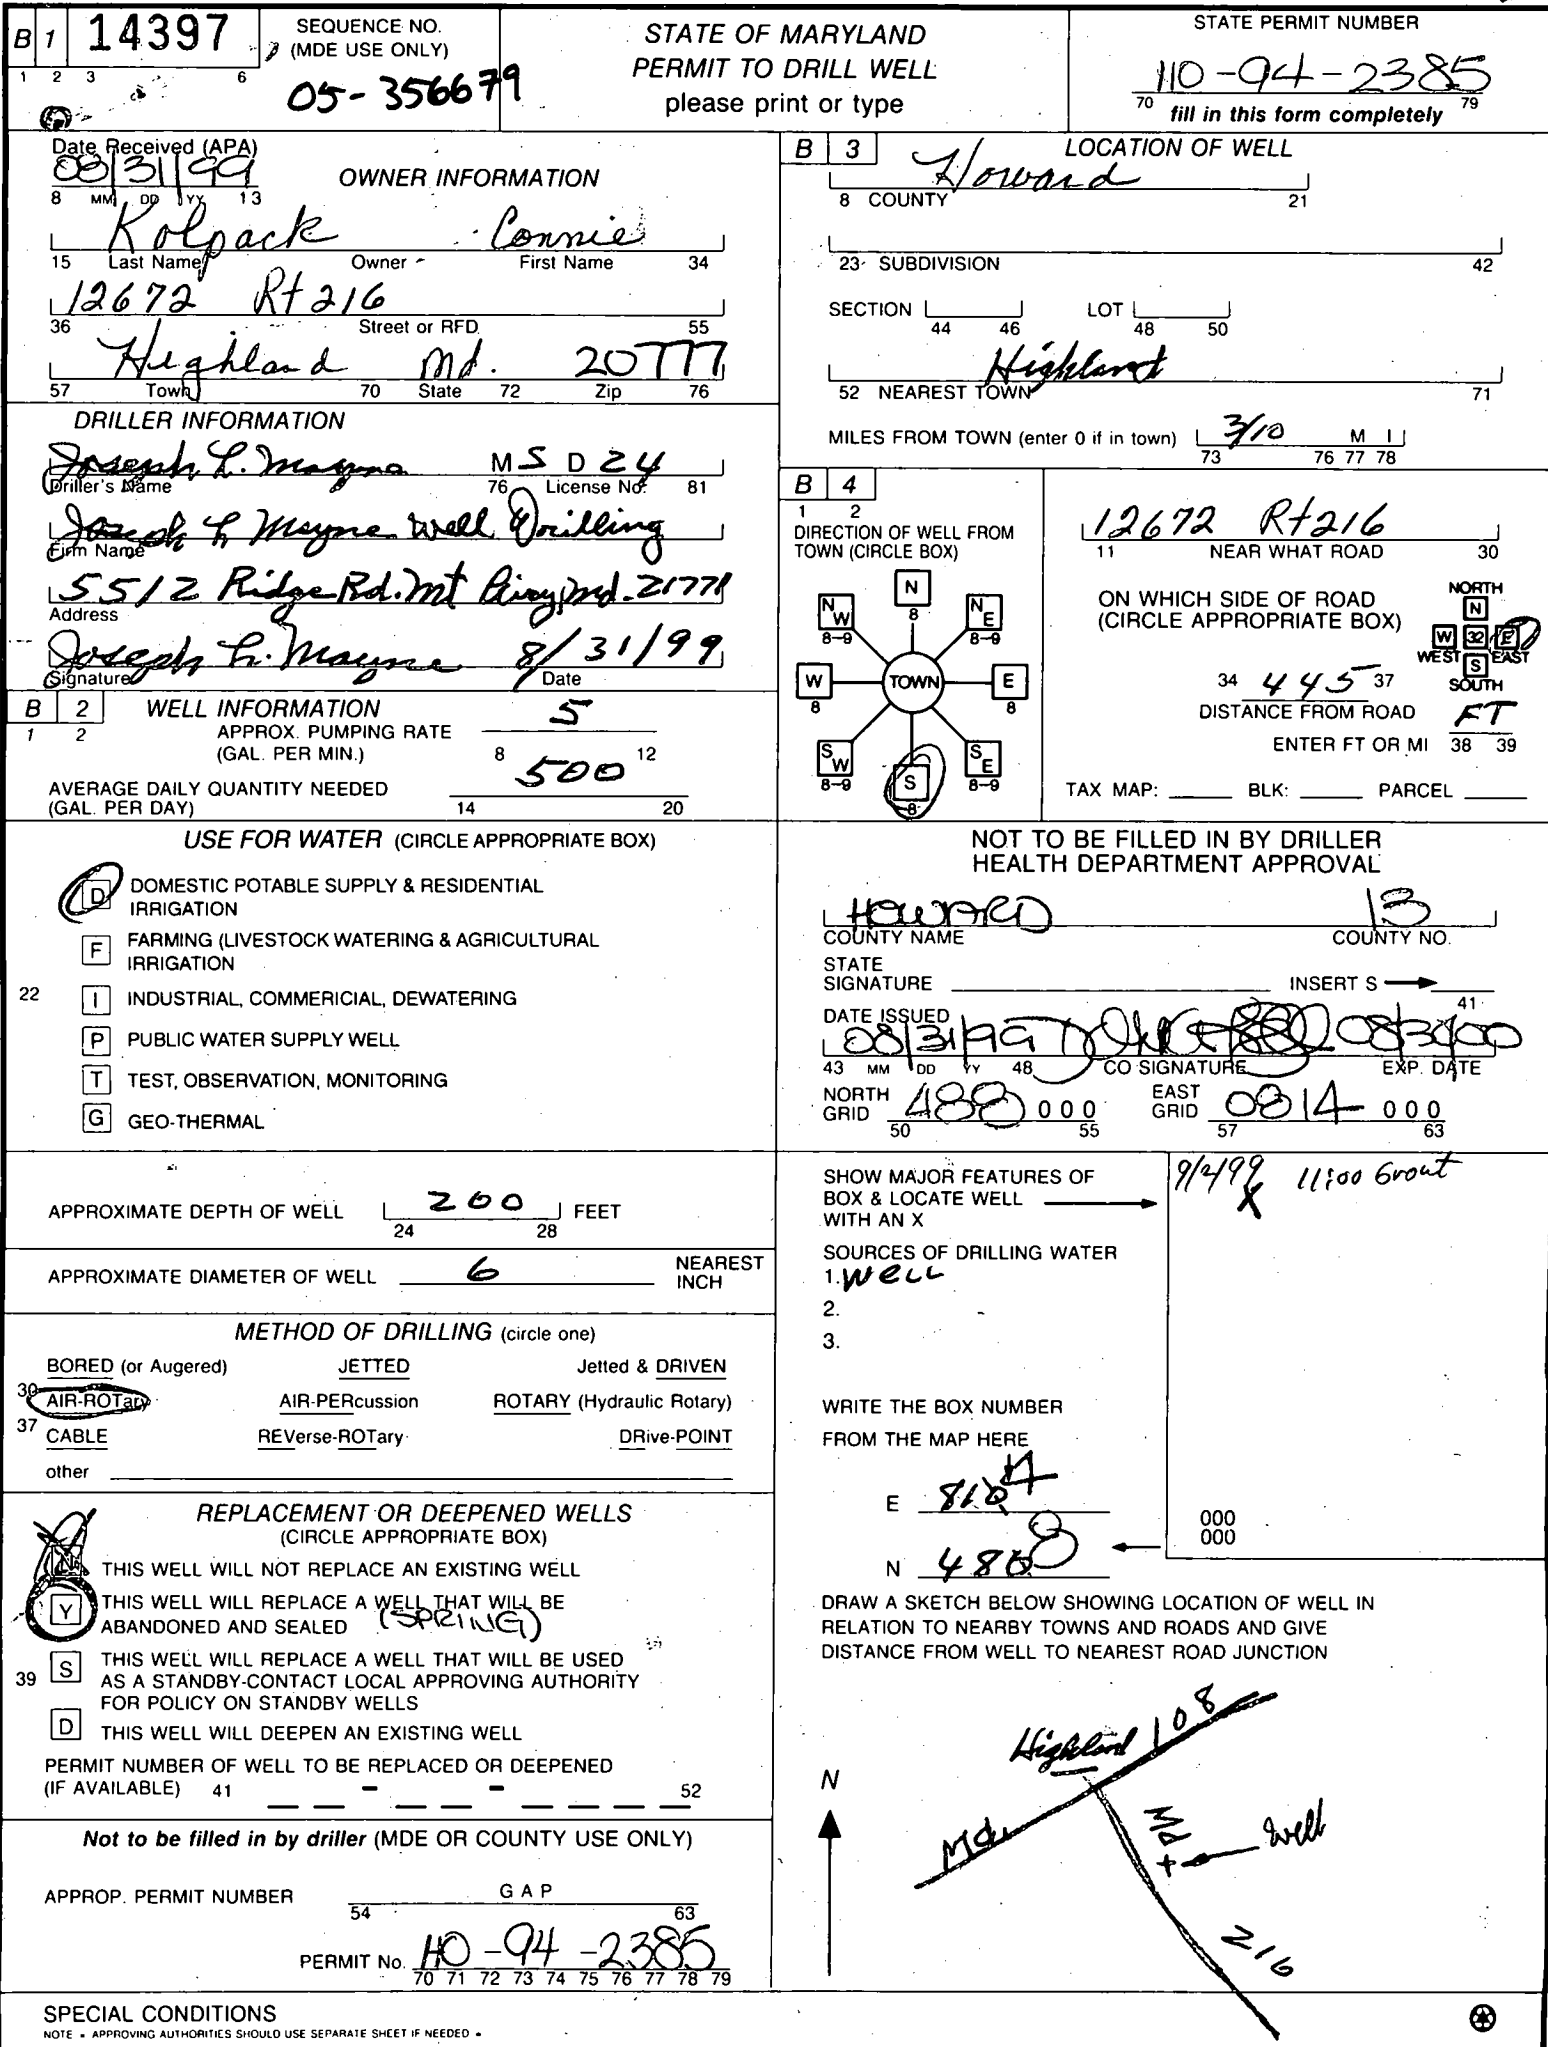 B 1 14397
1 2 3 6
SEQUENCE NO.
(MDE USE ONLY)
05-356679
STATE OF MARYLAND
PERMIT TO DRILL WELL
please print or type
STATE PERMIT NUMBER
HO-94-2385
70 79
fill in this form completely
Date Received (APA)
08/31/99
8 MM DD YY 13
OWNER INFORMATION
Kolpack Connie
15 Last Name Owner First Name 34
12672 Rt 216
36 Street or RFD 55
Highland Md. 20777
57 Town 70 State 72 Zip 76
DRILLER INFORMATION
Joseph L. Mayne M S D 24
Driller's Name 76 License No. 81
Joseph L Mayne Well Drilling
Firm Name
5512 Ridge Rd. Mt Airy, Md. 21771
Address
Joseph L. Mayne 8/31/99
Signature Date
B 2 WELL INFORMATION
1 2
APPROX. PUMPING RATE
(GAL. PER MIN.) 5
8 12
AVERAGE DAILY QUANTITY NEEDED
(GAL. PER DAY) 500
14 20
USE FOR WATER (CIRCLE APPROPRIATE BOX)
D DOMESTIC POTABLE SUPPLY & RESIDENTIAL
IRRIGATION
F FARMING (LIVESTOCK WATERING & AGRICULTURAL
IRRIGATION
22 I INDUSTRIAL, COMMERICIAL, DEWATERING
P PUBLIC WATER SUPPLY WELL
T TEST, OBSERVATION, MONITORING
G GEO-THERMAL
APPROXIMATE DEPTH OF WELL 200 FEET
24 28
APPROXIMATE DIAMETER OF WELL 6 NEAREST
INCH
METHOD OF DRILLING (circle one)
BORED (or Augered) JETTED Jetted & DRIVEN
30 AIR-ROTary AIR-PERcussion ROTARY (Hydraulic Rotary)
37 CABLE REVerse-ROTary DRive-POINT
other
REPLACEMENT OR DEEPENED WELLS
(CIRCLE APPROPRIATE BOX)
N THIS WELL WILL NOT REPLACE AN EXISTING WELL
Y THIS WELL WILL REPLACE A WELL THAT WILL BE
ABANDONED AND SEALED (SPRING)
39 S THIS WELL WILL REPLACE A WELL THAT WILL BE USED
AS A STANDBY-CONTACT LOCAL APPROVING AUTHORITY
FOR POLICY ON STANDBY WELLS
D THIS WELL WILL DEEPEN AN EXISTING WELL
PERMIT NUMBER OF WELL TO BE REPLACED OR DEEPENED
(IF AVAILABLE) 41 - - 52
Not to be filled in by driller (MDE OR COUNTY USE ONLY)
APPROP. PERMIT NUMBER G A P
54 63
PERMIT No. HO-94-2385
70 71 72 73 74 75 76 77 78 79
SPECIAL CONDITIONS
NOTE - APPROVING AUTHORITIES SHOULD USE SEPARATE SHEET IF NEEDED -
B 3 LOCATION OF WELL
Howard
8 COUNTY 21
23 SUBDIVISION 42
SECTION LOT
44 46 48 50
Highland
52 NEAREST TOWN 71
MILES FROM TOWN (enter 0 if in town) 3/10 M I
73 76 77 78
B 4
1 2
DIRECTION OF WELL FROM
TOWN (CIRCLE BOX)
N
8
NW NE
8-9 8-9
W TOWN E
8 8
SW SE
8-9 8-9
S
8
12672 Rt 216
11 NEAR WHAT ROAD 30
ON WHICH SIDE OF ROAD
(CIRCLE APPROPRIATE BOX)
NORTH
N
W 32 E
WEST EAST
S
SOUTH
34 445 37
DISTANCE FROM ROAD
FT
ENTER FT OR MI 38 39
TAX MAP: BLK: PARCEL
NOT TO BE FILLED IN BY DRILLER
HEALTH DEPARTMENT APPROVAL
HOWARD 13
COUNTY NAME COUNTY NO.
STATE
SIGNATURE INSERT S
41
DATE ISSUED
08/31/99 08/31/00
43 MM DD YY 48 CO SIGNATURE EXP. DATE
NORTH
GRID 488 000 EAST
GRID 0814 000
50 55 57 63
SHOW MAJOR FEATURES OF
BOX & LOCATE WELL
WITH AN X
9/2/99 11:00 Grout
X
SOURCES OF DRILLING WATER
1. WELL
2.
3.
WRITE THE BOX NUMBER
FROM THE MAP HERE
E 814
N 488
000
000
DRAW A SKETCH BELOW SHOWING LOCATION OF WELL IN
RELATION TO NEARBY TOWNS AND ROADS AND GIVE
DISTANCE FROM WELL TO NEAREST ROAD JUNCTION
N
Highland 108
Md
Md
+ Well
216